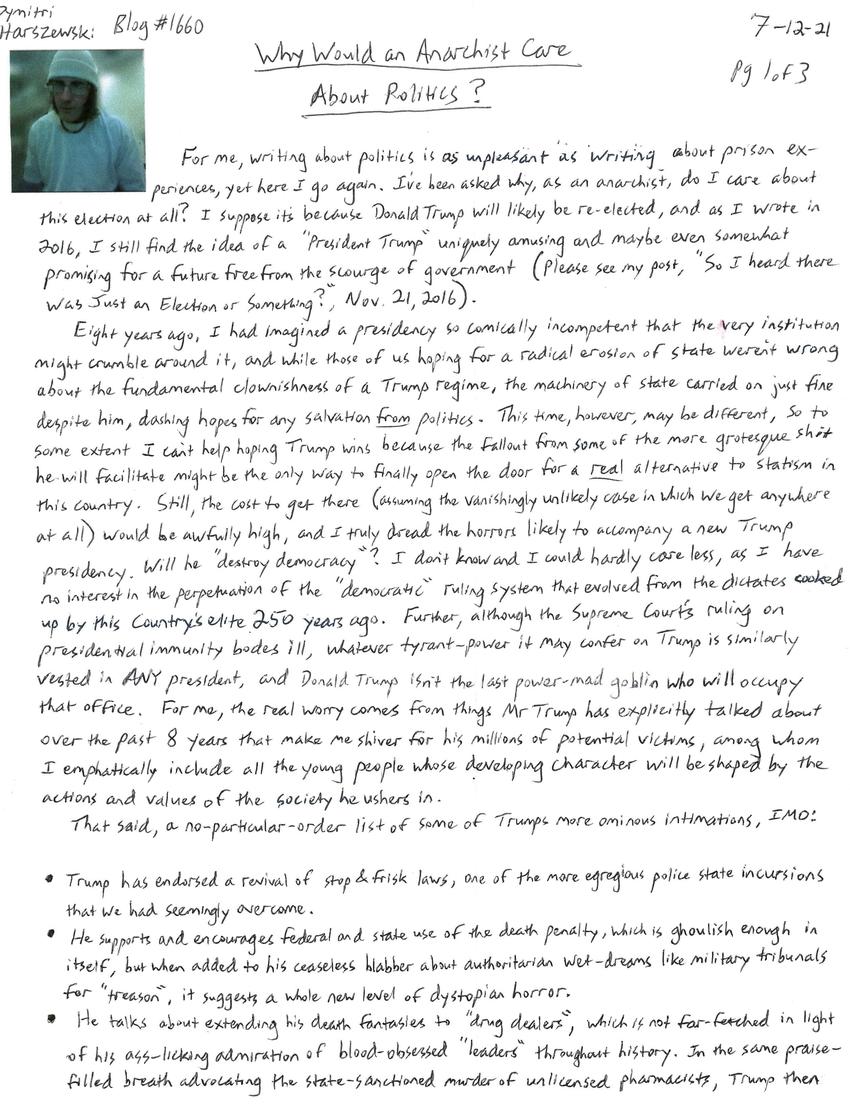 Dymitri
Harszewski: Blog #1660
7-12-21
Pg 1 of 3
Why Would an Anarchist Care
About Politics?
For me, writing about politics is as unpleasant as writing about prison ex-
periences, yet here I go again. I've been asked why, as an anarchist, do I care about
this election at all? I suppose it's because Donald Trump will likely be re-elected, and as I wrote in
2016, I still find the idea of a "President Trump" uniquely amusing and maybe even somewhat
promising for a future free from the scourge of government (Please see my post, "So I heard there
Was Just an Election or Something?", Nov. 21, 2016).
Eight years ago, I had imagined a presidency so comically incompetent that the very institution
might crumble around it, and while those of us hoping for a radical erosion of state weren't wrong
about the fundamental clownishness of a Trump regime, the machinery of state carried on just fine
despite him, dashing hopes for any salvation from politics. This time, however, may be different, So to
some extent I can't help hoping Trump wins because the fallout from some of the more grotesque shit
he will facilitate might be the only way to finally open the door for a real alternative to statism in
this country. Still, the cost to get there (assuming the vanishingly unlikely case in which we get anywhere
at all) would be awfully high, and I truly dread the horrors likely to accompany a new Trump
presidency. Will he "destroy democracy"? I don't know and I could hardly care less, as I have
no interest in the perpetuation of the "democratic" ruling system that evolved from the dictates cooked
up by this Country's elite 250 years ago. Further, although the Supreme Court's ruling on
presidential immunity bodes ill, whatever tyrant-power it may confer on Trump is similarly
vested in ANY president, and Donald Trump isn't the last power-mad goblin who will occupy
that office. For me, the real worry comes from things Mr Trump has explicitly talked about
over the past 8 years that make me shiver for his millions of potential victims, among whom
I emphatically include all the young people whose developing character will be shaped by the
actions and values of the society he ushers in.
That said, a no-particular-order list of some of Trumps more ominous intimations, IMO:
• Trump has endorsed a revival of stop & frisk laws, one of the more egregious police state incursions
that we had seemingly overcome.
• He supports and encourages federal and state use of the death penalty, which is ghoulish enough in
itself, but when added to his ceaseless blabber about authoritarian wet-dreams like military tribunals
for "treason", it suggests a whole new level of dystopian horror.
• He talks about extending his death fantasies to "drug dealers", which is not far-fetched in light
of his ass-licking admiration of blood-obsessed "leaders" throughout history. In the same praise-
filled breath advocating the state-sanctioned murder of unlicensed pharmacists, Trump then